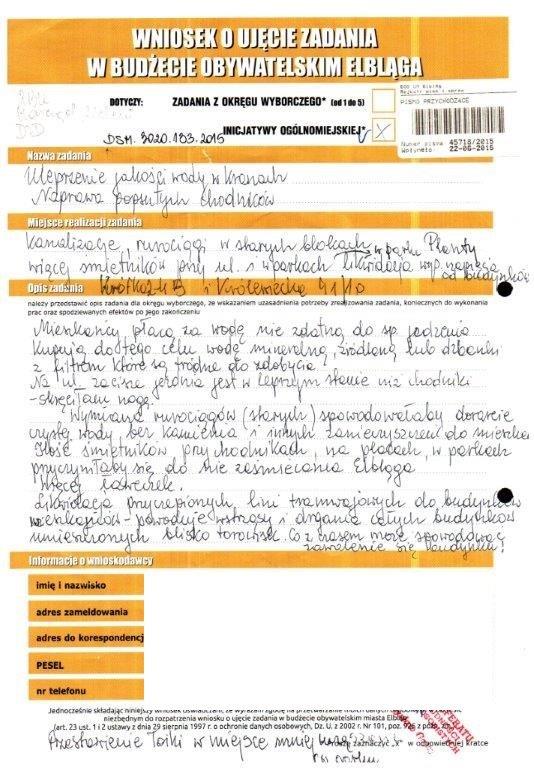 WNIOSEK O UJĘCIE ZADANIA
W BUDŻECIE OBYWATELSKIM ELBLĄGA
DOTYCZY: ZADANIA Z OKRĘGU WYBORCZEGO* (od 1 do 5)
PISMO PRZYCHODZĄCE
INICJATYWY OGÓLNOMIEJSKIEJ* X
DSM. 3020.183.2015
Numer pisma 45718/2015
Wpłynęło 22-06-2015
Nazwa zadania
Ulepszenie jakości wody w kranach
Naprawa popsutych chodników
Miejsce realizacji zadania
Kanalizacje, rurociągi w starych blokach, w parku Planty
więcej śmietników przy ul. i w parkach likwidacja
od budynków
i Królewiecka
Opis zadania
należy przedstawić opis zadania dla okręgu wyborczego, ze wskazaniem uzasadnienia potrzeby zrealizowania zadania, koniecznych do wykonania
prac oraz spodziewanych efektów po jego zakończeniu
Mieszkańcy płacą za wodę nie zdatną do sp. jedzenia
Kupują do tego celu wodę mineralną, źródlaną lub dzbanki
z filtrem które są trudne do zdobycia.
Na ul. zacisze jezdnia jest w lepszym stanie niż chodniki
- skręciłam nogę.
Wymiana rurociągów (starych) spowodowałaby dotarcie
czystej wody bez kamienia i innych zanieczyszczeń do mieszkań
Ilość śmietników przy chodnikach, na placach, w parkach
przyczyniłaby się do nie zaśmiecania Elbląga
Więcej ławeczek.
Likwidacja przyczepionych lini tramwajowych do budynków
mieszkańców - powoduje wstrząsy i drgania całych budynków
umieszczonych blisko torowisk. Co z czasem może spowodować
zawalenie się budynku!
Informacje o wnioskodawcy
imię i nazwisko
adres zameldowania
adres do korespondencj
PESEL
nr telefonu
Jednocześnie składając niniejszy wniosek oświadczam, że wyrażam zgodę na przetwarzanie moich danych
niezbędnym do rozpatrzenia wniosku o ujęcie zadania w budżecie obywatelskim miasta Elbląg
(art. 23 ust. 1 i 2 ustawy z dnia 29 sierpnia 1997 r. o ochronie danych osobowych, Dz. U. z 2002 r. Nr 101, poz. 926 z późn. zm.)
zaznaczyć „x” w odpowiedniej kratce
Przestawienie Toiki w miejsce mniej